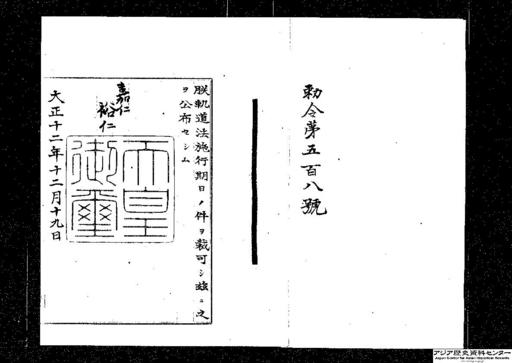 勅令第五百八號
朕軌道法施行期日ノ件ヲ裁可シ茲ニ之
ヲ公布セシム
嘉仁
裕仁
天皇
御璽
大正十二年十二月十九日
アジア歴史資料センター
Japan Center for Asian Historical Records